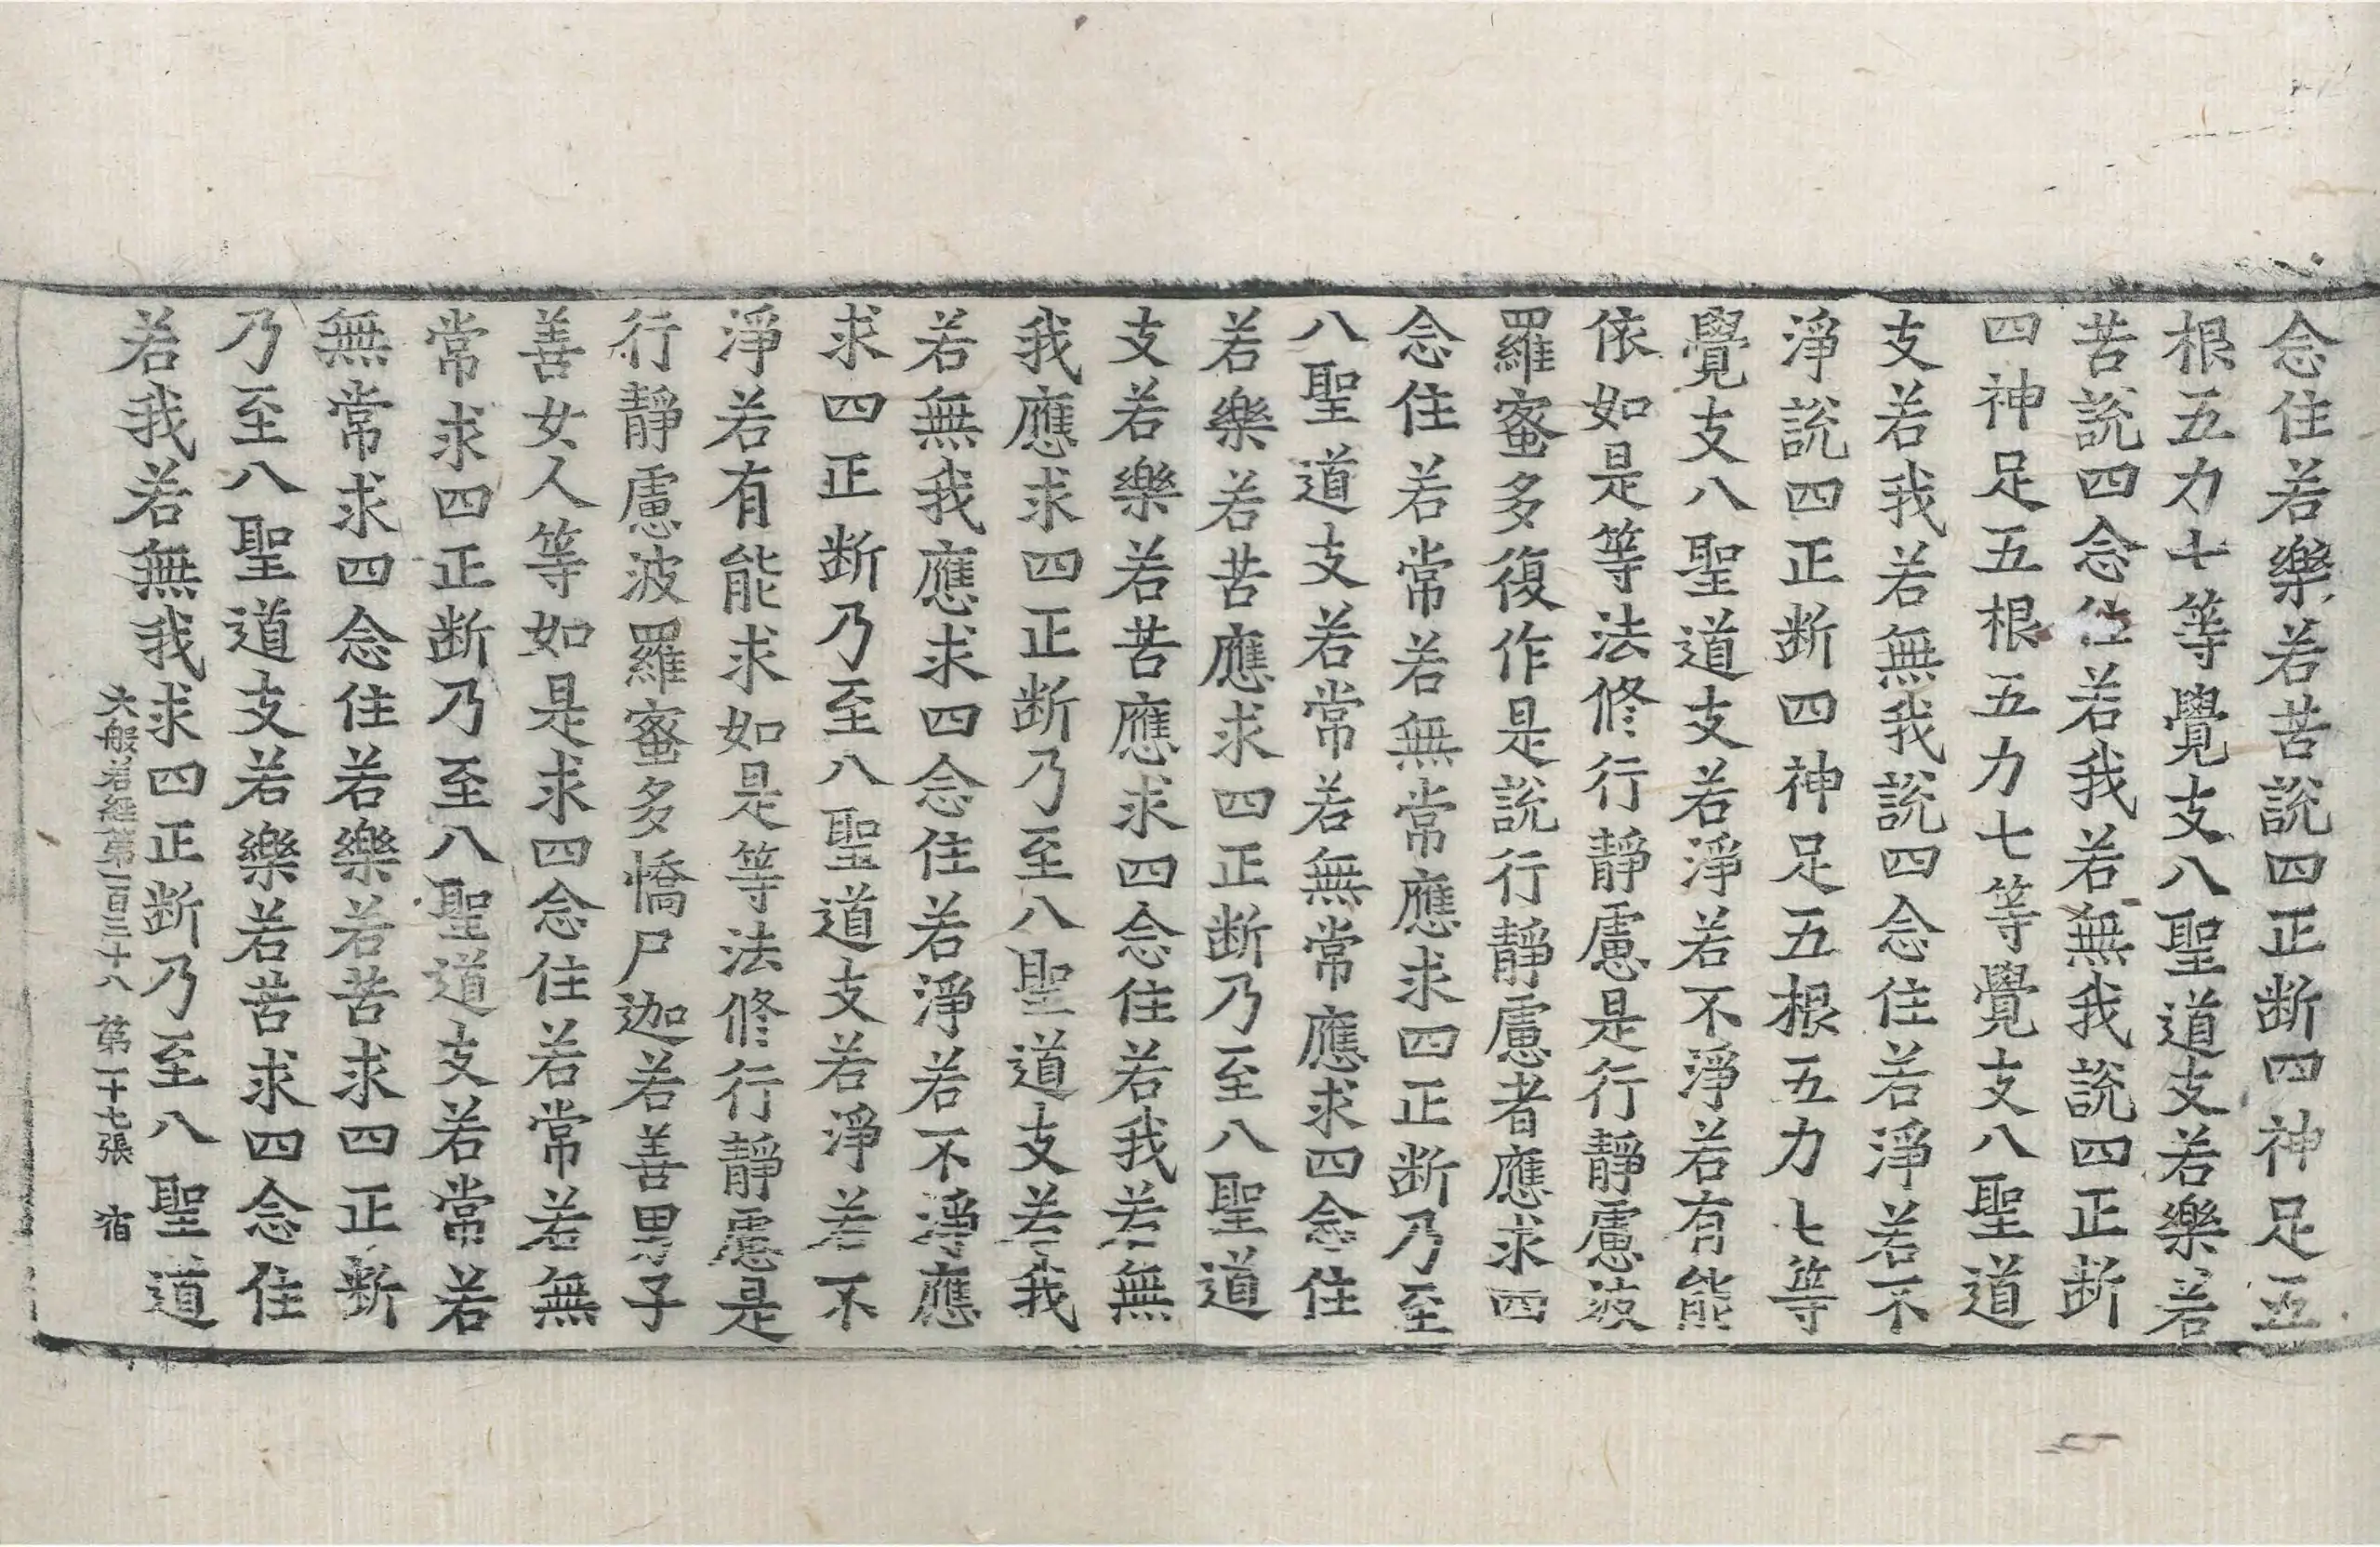 念住若樂若苦說四正断四神足五
根五力七等覺支八聖道支若樂若
苦說四念住若我若無我說四正断
四神足五根五力七等覺支八聖道
支若我若無我說四念住若淨若不
淨說四正断四神足五根五力七等
覺支八聖道支若淨若不淨若有能
依如是等法修行靜慮是行靜慮波
羅蜜多復作是說行靜慮者應求四
念住若常若無常應求四正断乃至
八聖道支若常若無常應求四念住
若樂若苦應求四正断乃至八聖道
支若樂若苦應求四念住若我若無
我應求四正断乃至八聖道支若我
若無我應求四念住若淨若不淨應
求四正断乃至八聖道支若淨若不
淨若有能求如是等法修行靜慮是
行靜慮波羅蜜多憍尸迦若善男子
善女人等如是求四念住若常若無
常求四正断乃至八聖道支若常若
無常求四念住若樂若苦求四正断
乃至八聖道支若樂若苦求四念住
若我若無我求四正断乃至八聖道
大般若經第一百三十八 第二十七張 宿